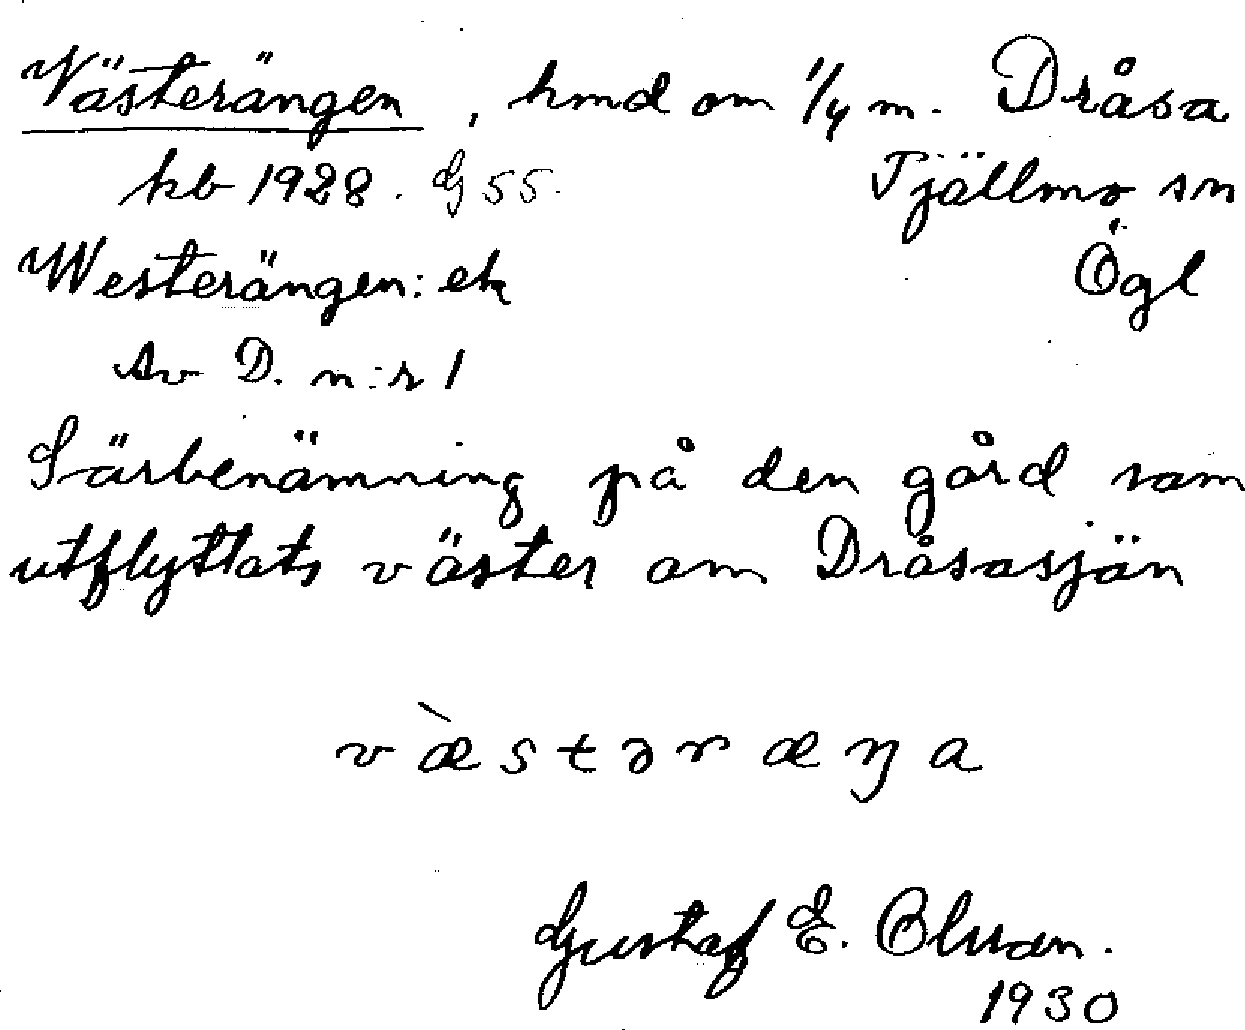 Västerängen, hmd om 1/4 m. Dråsa
kb 1928. G 55. Tjällmo sn
Westerängen: ek Ögl
Av D. n:r 1
Särbenämning på den gård som
utflyttats väster om Dråsasjön
v æ̀ s t ə r æ ŋ a
Gustaf E. Olsson.
1930